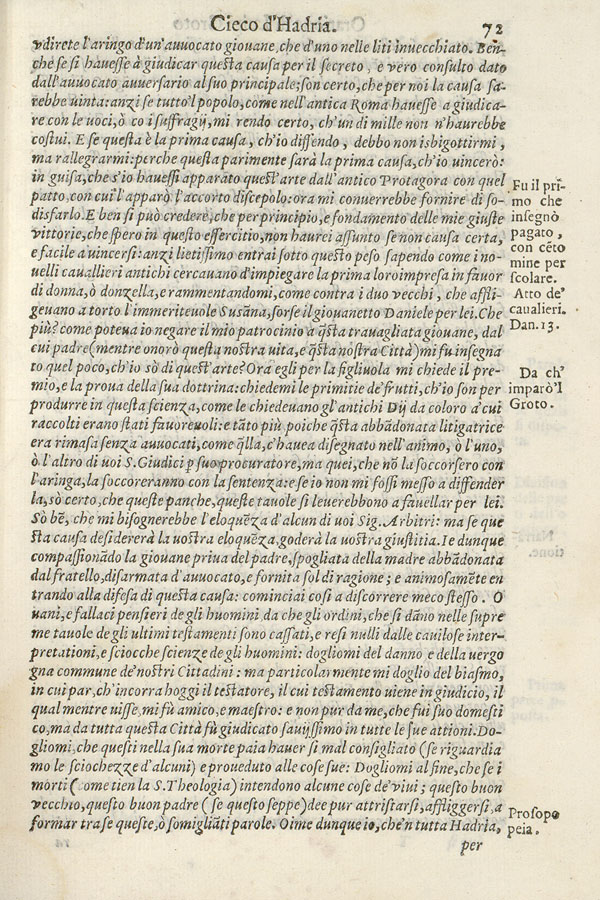 Cieco d'Hadria. 72
vdirete l'aringo d'un'auuocato giouane, che d'uno nelle liti inuecchiato. Ben-
che se si hauesse à giudicar questa causa per il secreto, e vero consulto dato
dall'auuocato auuersario al suo principale; son certo, che per noi la causa sa-
rebbe uinta: anzi se tutto'l popolo, come nell'antica Roma hauesse a giudica-
re con le uoci, ò co i suffragij, mi rendo certo, ch'un di mille non n'haurebbe
costui. E se questa è la prima causa, ch'io diffendo, debbo non isbigottirmi,
ma rallegrarmi: perche questa parimente sarà la prima causa, ch'io uincerò:
in guisa, che s'io hauessi apparato quest'arte dall'antico Protagora con quel
patto, con cui l'apparò l'accorto discepolo: ora mi conuerrebbe fornire di so-
disfarlo. E ben si può credere, che per principio, e fondamento delle mie giuste
vittorie, che spero in questo essercitio, non haurei assunto se non causa certa,
e facile a uincersi: anzi lietissimo entrai sotto questo peso sapendo come i no-
uelli cauallieri antichi cercauano d'impiegare la prima loro impresa in fauor
di donna, ò donzella, e rammentandomi, come contra i duo vecchi, che affli-
geuano a torto l'immeriteuole Susãna, sorse il giouanetto Daniele per lei. Che
più? come poteua io negare il mio patrocinio a q̃sta trauagliata giouane, dal
cui padre (mentre onorò questa nostra uita, e q̃sta nostra Città) mi fu insegna
to quel poco, ch'io sò di quest'arte? Ora egli per la figliuola mi chiede il pre-
mio, e la proua della sua dottrina: chiedemi le primitie de frutti, ch'io son per
produrre in questa scienza, come le chiedeuano gl'antichi Dij da coloro a'cui
raccolti erano stati fauoreuoli: e tãto più poiche q̃sta abbãdonata litigatrice
era rimasa senz'auuocati, come q̃lla, c'hauea disegnato nell'animo, ò l'uno,
ò l'altro di uoi S. Giudici ꝑ suo procuratore, ma quei, che nõ la soccorsero con
l'aringa, la soccorreranno con la sentenza: e se io non mi fossi messo a diffender
la, sò certo, che queste panche, queste tauole si leuerebbono a fauellar per lei.
Sò bẽ, che mi bisognerebbe l'eloquẽza d'alcun di uoi Sig. Arbitri: ma se que
sta causa desidererà la uostra eloquẽza, goderà la uostra giustitia. Ie dunque
compassionãdo la giouane priua del padre, spogliata della madre abbãdonata
dal fratello, disarmata d'auuocato, e fornita sol di ragione; e animosamẽte en
trando alla difesa di questa causa: cominciai cosi a discorrere meco stesso. O
uani, e fallaci pensieri de gli huomini da che gli ordini, che si dãno nelle supre
me tauole de gli ultimi testamenti sono cassati, e resi nulli dalle cauilose inter-
pretationi, e sciocche scienze de gli huomini: dogliomi del danno e della uergo
gna commune de'nostri Cittadini: ma particolarmente mi doglio del biasmo,
in cui par, ch'incorra hoggi il testatore, il cui testamento uiene in giudicio, il
qual mentre uisse, mi fù amico, e maestro: e non pur da me, che fui suo domesti
co, ma da tutta questa Città fù giudicato sauijssimo in tutte le sue attioni. Do-
gliomi, che questi nella sua morte paia hauer si mal consigliato (se riguardia
mo le sciochezze d'alcuni) e proueduto alle cose sue: Dogliomi al fine, che se i
morti (come tien la S. Theologia) intendono alcune cose de'viui; questo buon
vecchio, questo buon padre (se questo seppe) dee pur attristarsi, affliggersi, a
formar tra se queste, ò somigliãti parole. Oime dunque io, che'n tutta Hadria,
per
Fu il pri-
mo che
insegnò
pagato,
con cẽto
mine per
scolare.
Atto de'
caualieri.
Dan. 13.
Da ch'
imparò'l
Groto.
Prosopo
peia.